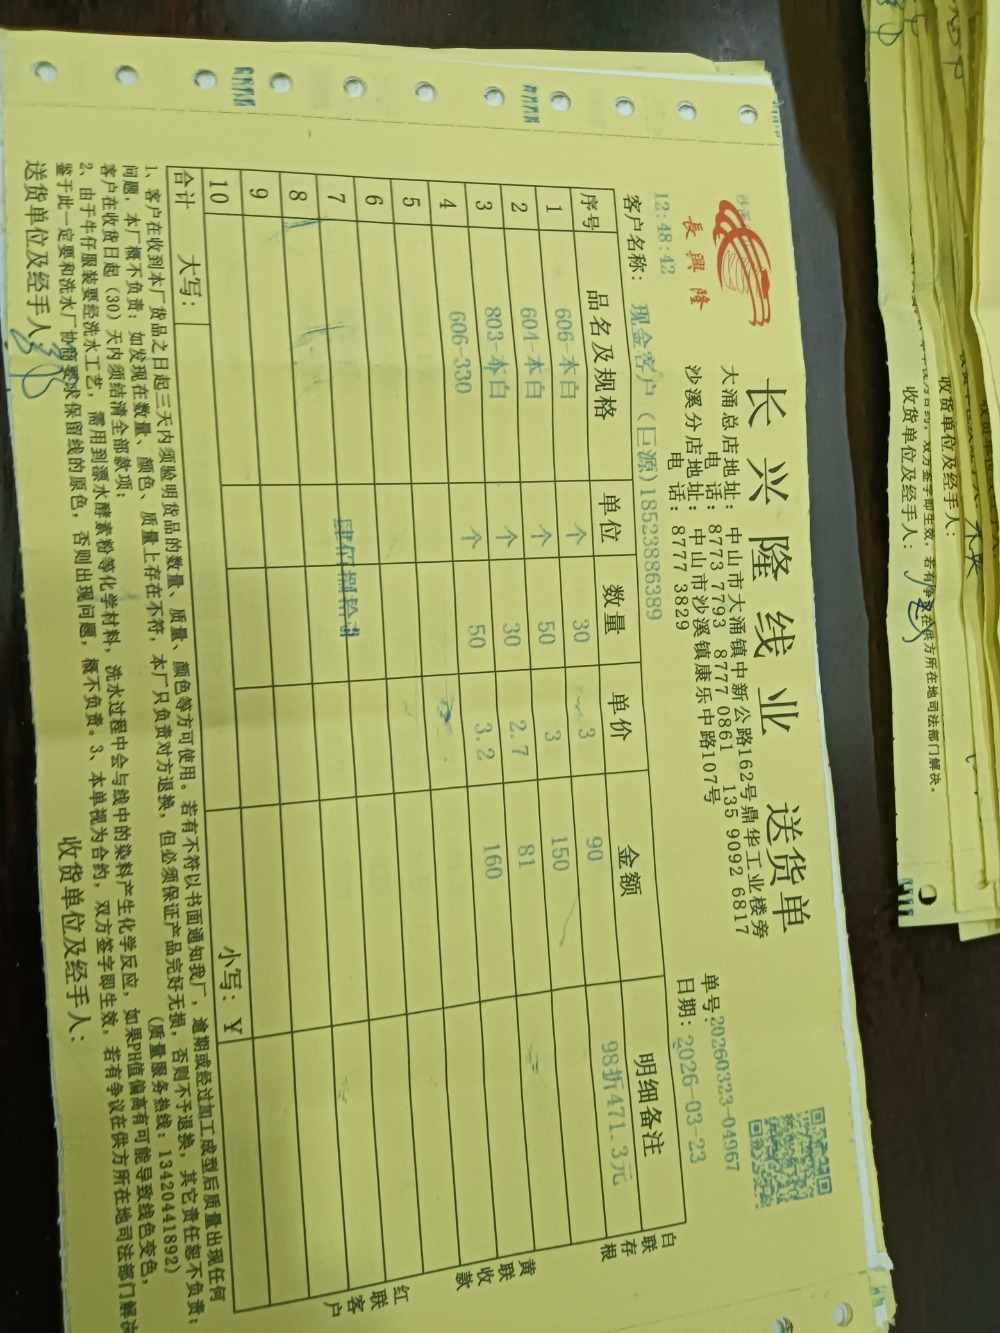 长兴隆线业 送货单
長興隆
大涌总店地址：中山市大涌镇中新公路162号鼎华工业楼旁
电话：8773 7793 8777 0861 135 9092 6817
沙溪分店地址：中山市沙溪镇康乐中路107号
电话：8777 3829
单号:20260323-04967
日期：2026-03-23
12:48:42
客户名称：现金客户（巨源)18523886389
序号 品名及规格 单位 数量 单价 金额 明细备注
1 606-本白 个 30 3 90 98折471.3元
2 604-本白 个 50 3 150
3 803-本白 个 30 2.7 81
4 606-330 个 50 3.2 160
5
6
7
8
9
10
合计 大写： 小写：￥
白联存根
黄联收款
红联客户
1、客户在收到本厂货品之日起三天内须验明货品的数量、质量、颜色等方可使用。若有不符以书面通知我厂，逾期或经过加工成型后质量出现任何
问题，本厂概不负责；如发现在数量、颜色、质量上存在不符，本厂只负责对方退换，但必须保证产品完好无损，否则不予退换，其它责任恕不负责；
客户在收货日起（30）天内须结清全部款项； （质量服务热线：13420441892）
2、由于牛仔服装要经洗水工艺，需用到漂水酵素粉等化学材料，洗水过程中会与线中的染料产生化学反应，如果PH值偏高有可能导致线色变色，
鉴于此一定要和洗水厂协商要求保留线的原色，否则出现问题，概不负责。3、本单视为合约，双方签字即生效，若有争议在供方所在地司法部门解决
送货单位及经手人： 收货单位及经手人：
收货单位及经手人：
收货单位及经手人：